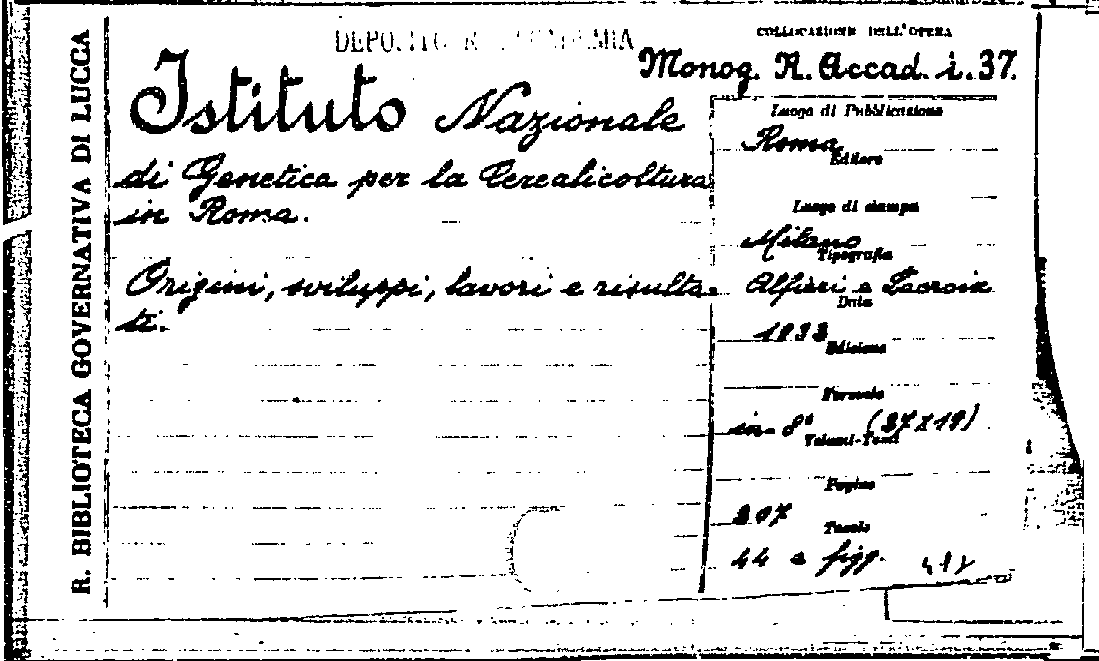 R. BIBLIOTECA GOVERNATIVA DI LUCCA
DEPOSITO R. ACCADEMIA
COLLOCAZIONE DELL'OPERA
Monog. R. Accad. i. 37.
Istituto Nazionale
di Genetica per la Cerealicoltura
in Roma.
Origini, sviluppi, lavori e risulta-
ti.
Luogo di Pubblicazione
Roma
Editore
Luogo di stampa
Milano
Tipografia
Alfieri e Lacroix
Data
Edizione
Formato
in-8°
Volumi-Tomi
Pagine
Tavole
44 e figg.